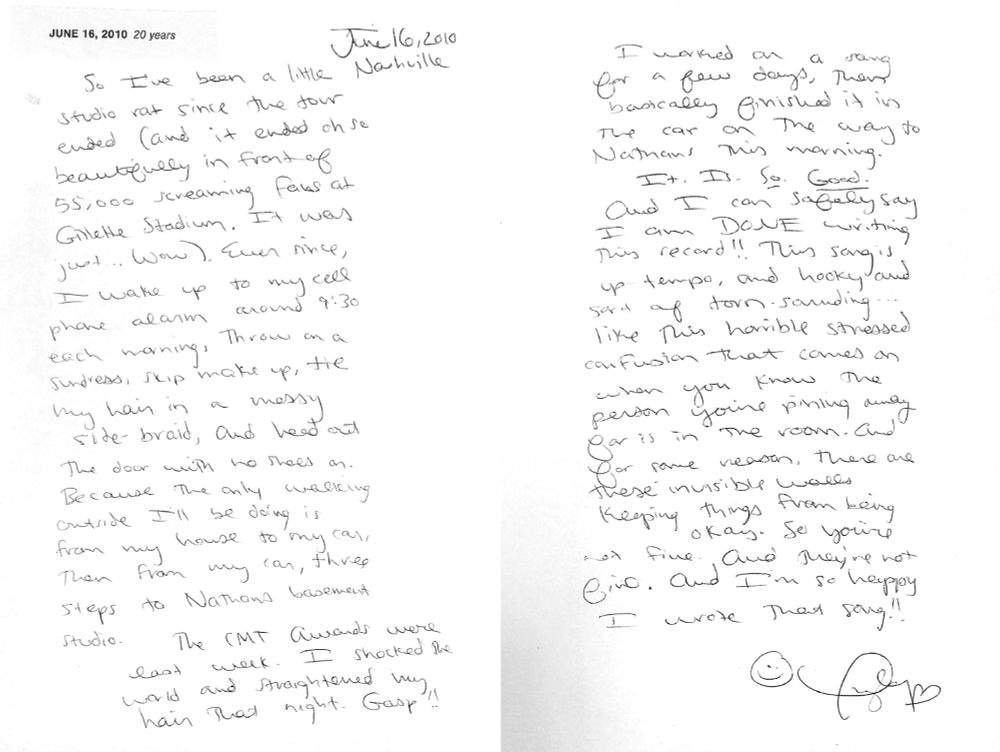 JUNE 16, 2010 20 years
June 16, 2010
Nashville
So I've been a little
studio rat since the tour
ended (and it ended oh so
beautifully in front of
55,000 screaming fans at
Gillette Stadium. It was
just... Wow). Ever since,
I wake up to my cell
phone alarm around 9:30
each morning, Throw on a
sundress, skip make up, tie
my hair in a messy
side-braid, and head out
The door with no shoes on.
Because The only walking
outside I'll be doing is
from my house to my car,
Then from my car, three
steps to Nathans basement
studio. The CMT Awards were
last week. I shocked the
world and straightened my
hair That night. Gasp!!
I worked on a song
for a few days, Then
basically finished it in
The car on The way to
Nathans This morning.
It. Is. So. Good.
And I can safely say
I am DONE writing
This record!! This song is
up tempo, and hooky and
sort of torn-sounding...
like This horrible stressed
confusion That comes on
when you know The
person you're pining away
for is in The room. And
for some reason, There are
these invisible walls
keeping things from being
okay. So you're
not fine. And They're not
fine. And I'm so happy
I wrote That song!!